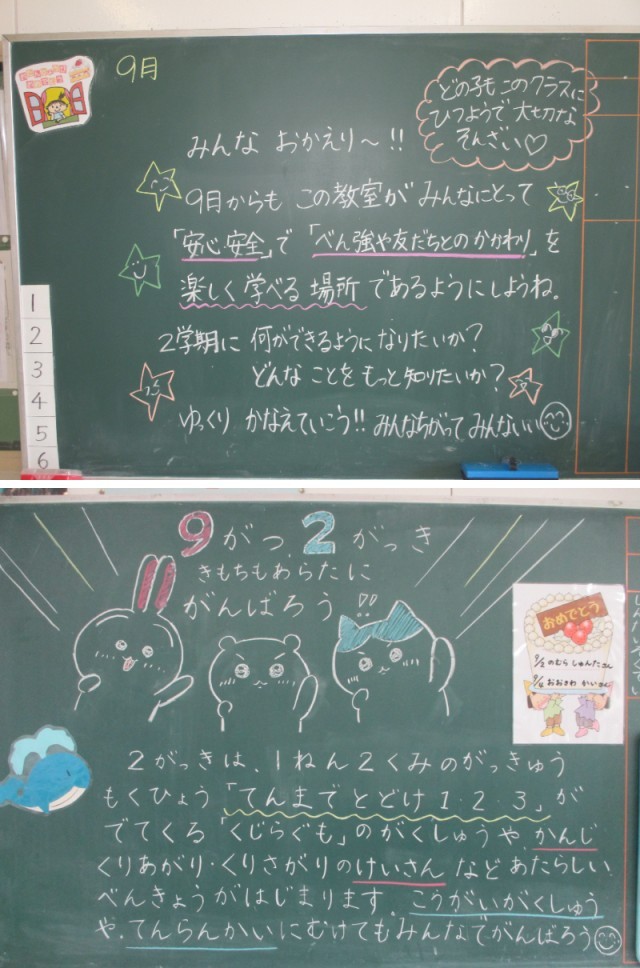 9月
どの子も このクラスに
ひつようで 大切な
そんざい♡
みんな おかえり～!!
9月からも この教室が みんなにとって
「安心・安全」で 「べん強や友だちとの かかわり」を
楽しく 学べる 場所 であるようにしようね。
2学期に 何ができるように なりたいか?
どんな ことを もっと 知りたいか?
ゆっくり かなえていこう!! みんなちがって みんないい
1
2
3
4
5
6
9がつ、2がっき
きもちもあらたに
がんばろう!!
おめでとう
9/3 のむら しゅんたさん
9/4 おおさわ かいさん
2がっきは、1ねん2くみのがっきゅう
もくひょう「てんまでとどけ1・2・3」が
でてくる「くじらぐも」のがくしゅうや、かんじ
くりあがり・くりさがりのけいさん などあたらしい
べんきょうがはじまります。こうがいがくしゅう
や、てんらんかいにむけてもみんなでがんばろう